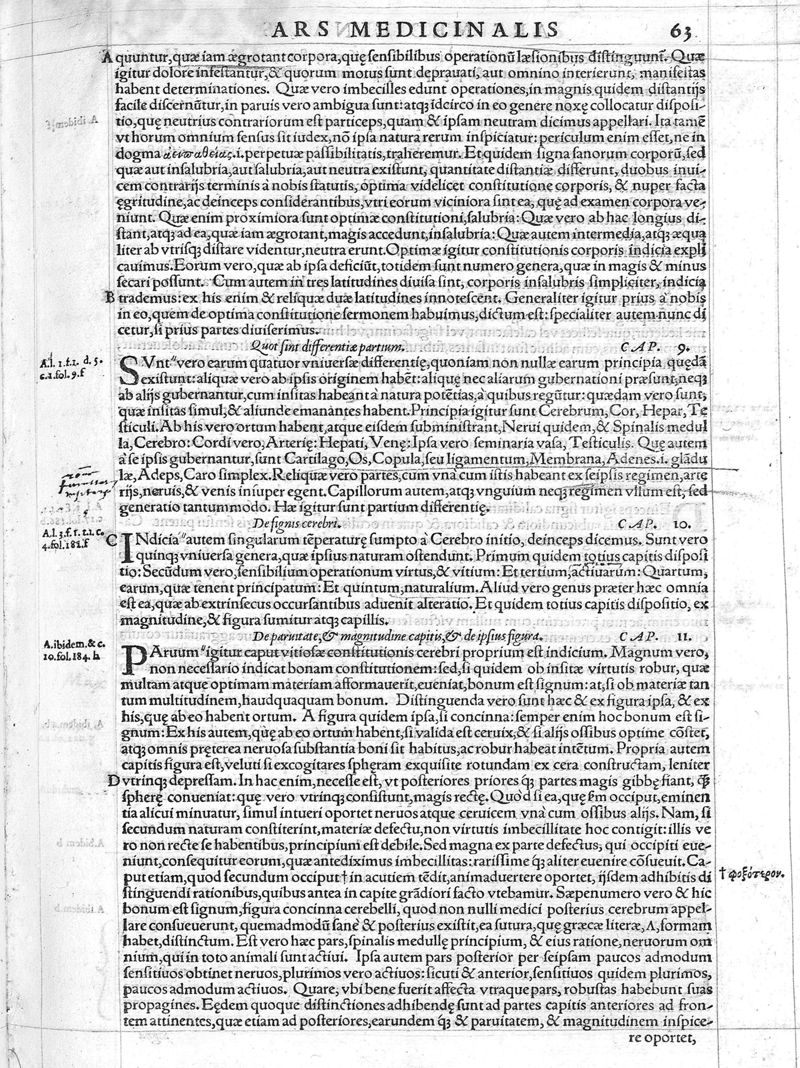 ARS MEDICINALIS 63
A quuntur, quæ iam ægrotant corpora, quę sensibilibus operationũ læsionibus distinguunt. Quæ
igitur dolore infestantur, & quorum motus sunt deprauati, aut omnino interierunt, manifestas
habent determinationes. Quæ vero imbecilles edunt operationes, in magnis quidem distantijs
facile discernũtur, in paruis vero ambigua sunt: atq; idcirco in eo genere noxę collocatur disposi-
tio, quę neutrius contrariorum est particeps, quam & ipsam neutram dicimus appellari. Ita tamẽ
vt horum omnium sensus sit iudex, nõ ipsa natura rerum inspiciatur: periculum enim esset, ne in
dogma ἀειπαθείας .i. perpetuæ passibilitatis, traheremur. Et quidem signa sanorum corporũ, sed
quæ aut insalubria, aut salubria, aut neutra existunt, quantitate distantiæ differunt, duobus inui-
cem contrarijs terminis à nobis statutis, optima videlicet constitutione corporis, & nuper facta
ęgritudine, ac deinceps considerantibus, vtri eorum viciniora sint ea, quę ad examen corpora ve-
niunt. Quæ enim proximiora sunt optimæ constitutioni, salubria: Quæ vero ab hac longius di-
stant, atq; ad ea, quæ iam ægrotant, magis accedunt, insalubria: Quæ autem intermedia, atq; æqua
liter ab vtrisq; distare videntur, neutra erunt. Optimæ igitur constitutionis corporis indicia expli
cauimus. Eorum vero, quæ ab ipsa deficiũt, totidem sunt numero genera, quæ in magis & minus
secari possunt. Cum autem in tres latitudines diuisa sint, corporis insalubris simpliciter, indicia
B trademus: ex his enim & reliquæ duæ latitudines innotescent. Generaliter igitur prius à nobis
in eo, quem de optima constitutione sermonem habuimus, dictum est: specialiter autem nunc di
cetur, si prius partes diuiserimus.
Quot sint differentiæ partium. CAP. 9.
A.l. 1. f. 2. d. 5.
c. 1. fol. 9. f
SVnt vero earum quatuor vniuersæ differentię, quoniam non nullæ earum principia quędã
existunt: aliquæ vero ab ipsis originem habẽt: alique nec aliarum gubernationi præsunt, neq;
ab alijs gubernantur, cum insitas habeant à natura potẽtias, à quibus regũtur: quædam vero sunt,
quæ insitas simul, & aliunde emanantes habent. Principia igitur sunt Cerebrum, Cor, Hepar, Te
sticuli. Ab his vero ortum habent, atque eisdem subministrant, Nerui quidem, & Spinalis medul
la, Cerebro: Cordi vero, Arterię: Hepati, Venę: Ipsa vero seminaria vasa, Testiculis. Quę autem
à se ipsis gubernantur, sunt Cartilago, Os, Copula, seu ligamentum, Membrana, Adenes .i. glãdu
læ, Adeps, Caro simplex. Reliquæ vero partes, cum vna cum istis habeant ex seipsis regimen, arte
rijs, neruis, & venis insuper egent. Capillorum autem, atq; vnguium neq; regimen vllum est, sed
generatio tantummodo. Hæ igitur sunt partium differentię.
De signis cerebri. CAP. 10.
A.l. 3. f. 1. t. 1. c.
4. fol. 182. f
C INdicia autem singularum tẽperaturę sumpto à Cerebro initio, deinceps dicemus. Sunt vero
quinq; vniuersa genera, quæ ipsius naturam ostendunt. Primum quidem totius capitis disposi
tio: Secũdum vero, sensibilium operationum virtus, & vitium: Et tertium, actiuarum: Quartum,
earum, quæ tenent principatum: Et quintum, naturalium. Aliud vero genus præter hæc omnia
est ea, quæ ab extrinsecus occursantibus aduenit alteratio. Et quidem totius capitis dispositio, ex
magnitudine, & figura sumitur atq; capillis.
De paruitate, & magnitudine capitis, & de ipsius figura. CAP. 11.
A. ibidem. & c.
10. fol. 184. h
PAruum igitur caput vitiosæ constitutionis cerebri proprium est indicium. Magnum vero,
non necessario indicat bonam constitutionem: sed, si quidem ob insitæ virtutis robur, quæ
multam atque optimam materiam afformauerit, eueniat, bonum est signum: at, si ob materiæ tan
tum multitudinem, haudquaquam bonum. Distinguenda vero sunt hæc & ex figura ipsa, & ex
his, quę ab eo habent ortum. A figura quidem ipsa, si concinna: semper enim hoc bonum est si-
gnum: Ex his autem, quę ab eo ortum habent, si valida est ceruix, & si alijs ossibus optime cõstet,
atq; omnis pręterea neruosa substantia boni sit habitus, ac robur habeat intẽtum. Propria autem
capitis figura est, veluti si excogitares sphęram exquisite rotundam ex cera constructam, leniter
D vtrinq; depressam. In hac enim, necesse est, vt posteriores priores q; partes magis gibbę fiant, q̃
spherę conueniat: quę vero vtrinq; consistunt, magis rectę. Quòd si ea, quę scdm occiput, eminen
tia alicui minuatur, simul intueri oportet neruos atque ceruicem vna cum ossibus alijs. Nam, si
secundum naturam constiterint, materiæ defectu, non virtutis imbecillitate hoc contigit: illis ve
ro non recte se habentibus, principium est debile. Sed magna ex parte defectus, qui occipiti eue-
niunt, consequitur eorum, quæ antediximus imbecillitas: rarissime q; aliter euenire cõsueuit. Ca-
put etiam, quod secundum occiput † in acutiem tẽdit, animaduertere oportet, ijsdem adhibitis di
† φοξότερον.
stinguendi rationibus, quibus antea in capite grãdiori facto vtebamur. Sæpenumero vero & hic
bonum est signum, figura concinna cerebelli, quod non nulli medici posterius cerebrum appel-
lare consueuerunt, quemadmodũ sanè & posterius existit, ea sutura, quę græcæ literæ, Λ, formam
habet, distinctum. Est vero hæc pars, spinalis medullę principium, & eius ratione, neruorum om
nium, qui in toto animali sunt actiui. Ipsa autem pars posterior per seipsam paucos admodum
sensitiuos obtinet neruos, plurimos vero actiuos: sicuti & anterior, sensitiuos quidem plurimos,
paucos admodum actiuos. Quare, vbi bene fuerit affecta vtraque pars, robustas habebunt suas
propagines. Eędem quoque distinctiones adhibendę sunt ad partes capitis anteriores ad fron-
tem attinentes, quæ etiam ad posteriores, earundem q; & paruitatem, & magnitudinem inspice-
re oportet,